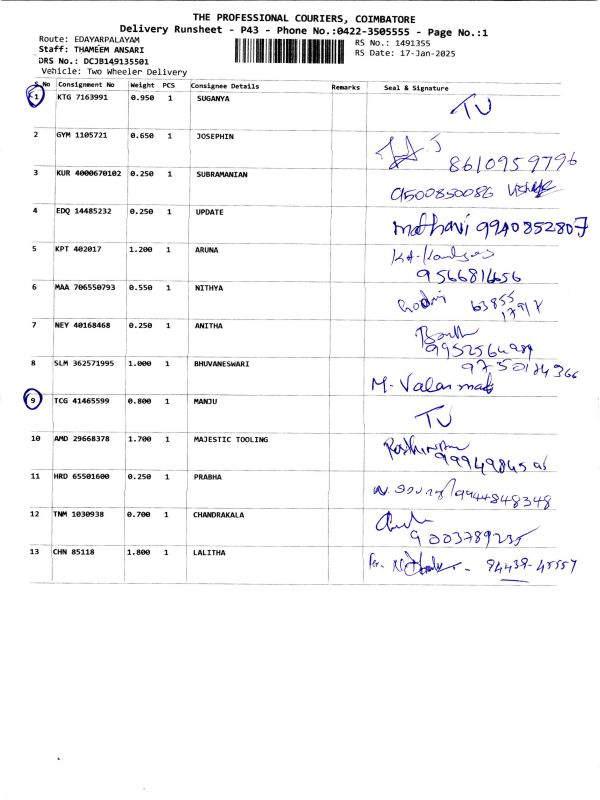 THE PROFESSIONAL COURIERS, COIMBATORE
Delivery Runsheet - P43 - Phone No.:0422-3505555 - Page No.:1
Route: EDAYARPALAYAM
Staff: THAMEEM ANSARI
DRS No.: DCJB149135501
Vehicle: Two Wheeler Delivery
RS No.: 1491355
RS Date: 17-Jan-2025
S.No Consignment No Weight PCS Consignee Details Remarks Seal & Signature
1 KTG 7163991 0.950 1 SUGANYA TU
2 GYM 1105721 0.650 1 JOSEPHIN
8610959796
3 KUR 4000670102 0.250 1 SUBRAMANIAN
9500850086
4 EDQ 14485232 0.250 1 UPDATE
mathavi 9940852807
5 KPT 402017 1.200 1 ARUNA
9566814656
6 MAA 706550793 0.550 1 NITHYA
63855
17917
7 NEY 40168468 0.250 1 ANITHA
8 SLM 362571995 1.000 1 BHUVANESWARI
M. Valarmathi
9 TCG 41465599 0.800 1 MANJU TU
10 AMD 29668378 1.700 1 MAJESTIC TOOLING
11 HRD 65501600 0.250 1 PRABHA
9944848348
12 TNM 1030938 0.700 1 CHANDRAKALA
9003789235
13 CHN 85118 1.800 1 LALITHA
94439-45557